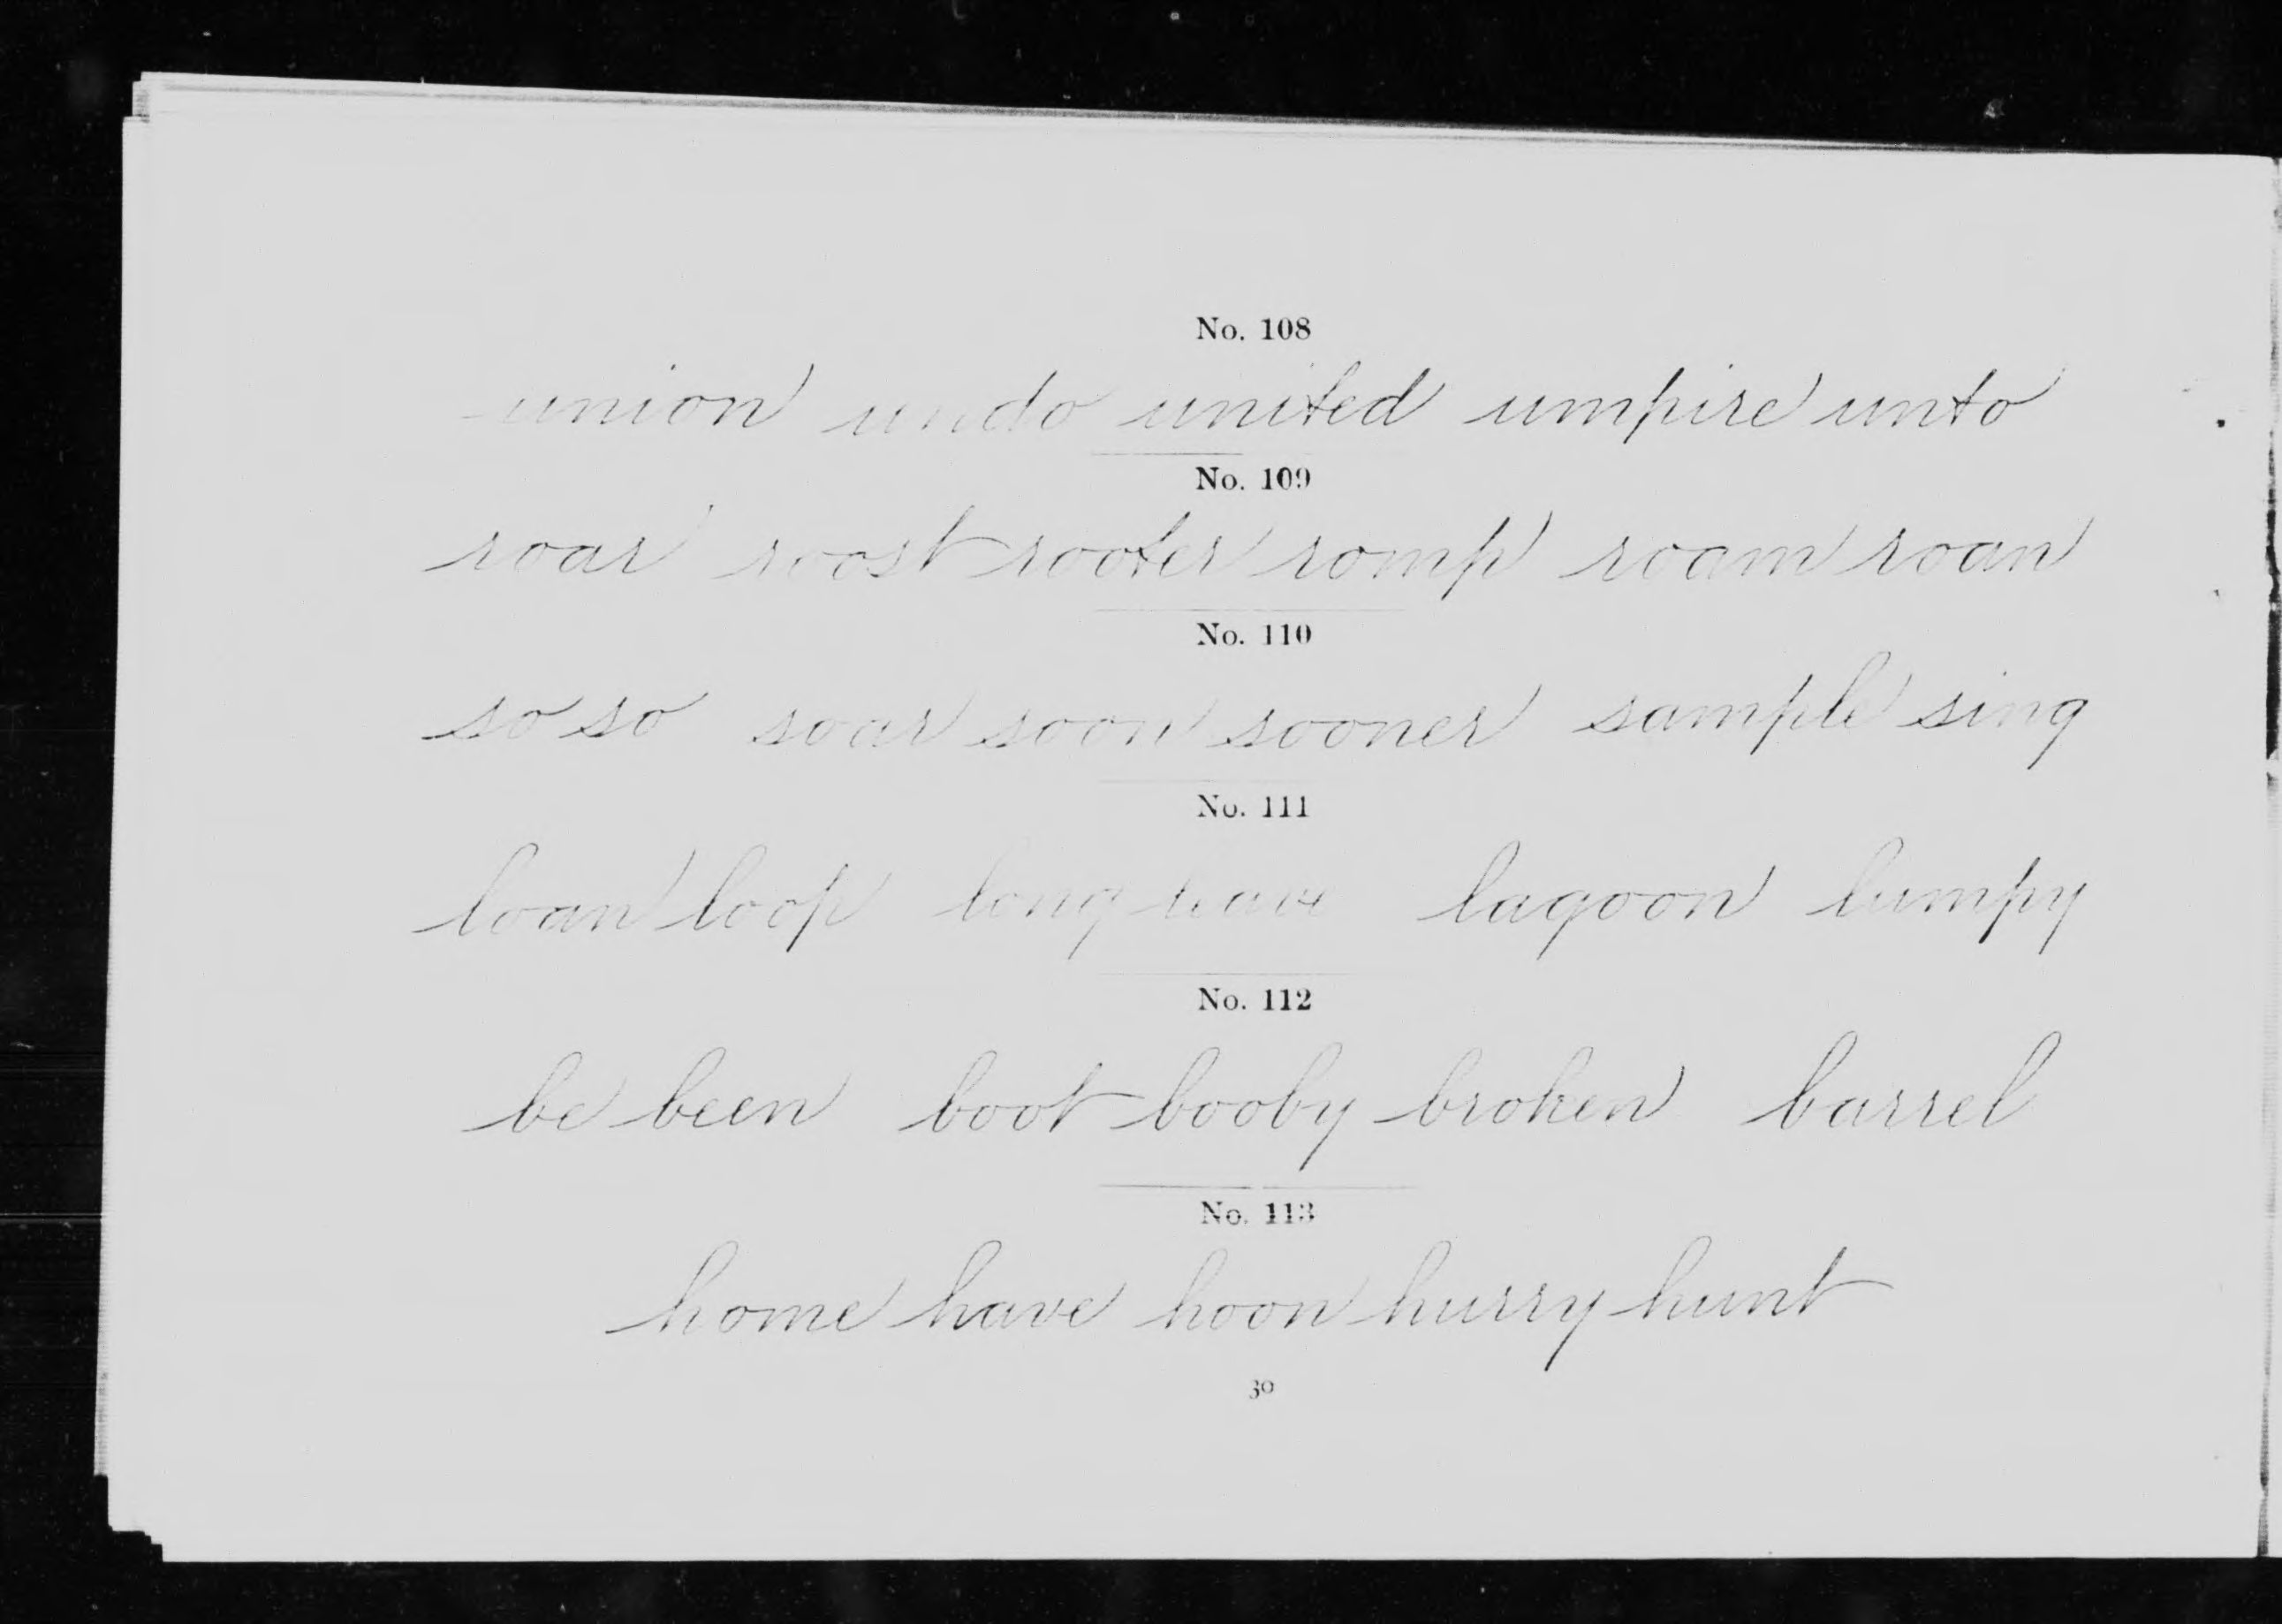 No. 108
union undo united umpire unto
No. 109
roar roost rooter romp roam roan
No. 110
so so soar soon sooner sample sing
No. 111
loan loop long leave lagoon lumpy
No. 112
be been boot booby broken barrel
No. 113
home have hoon hurry hunt
30